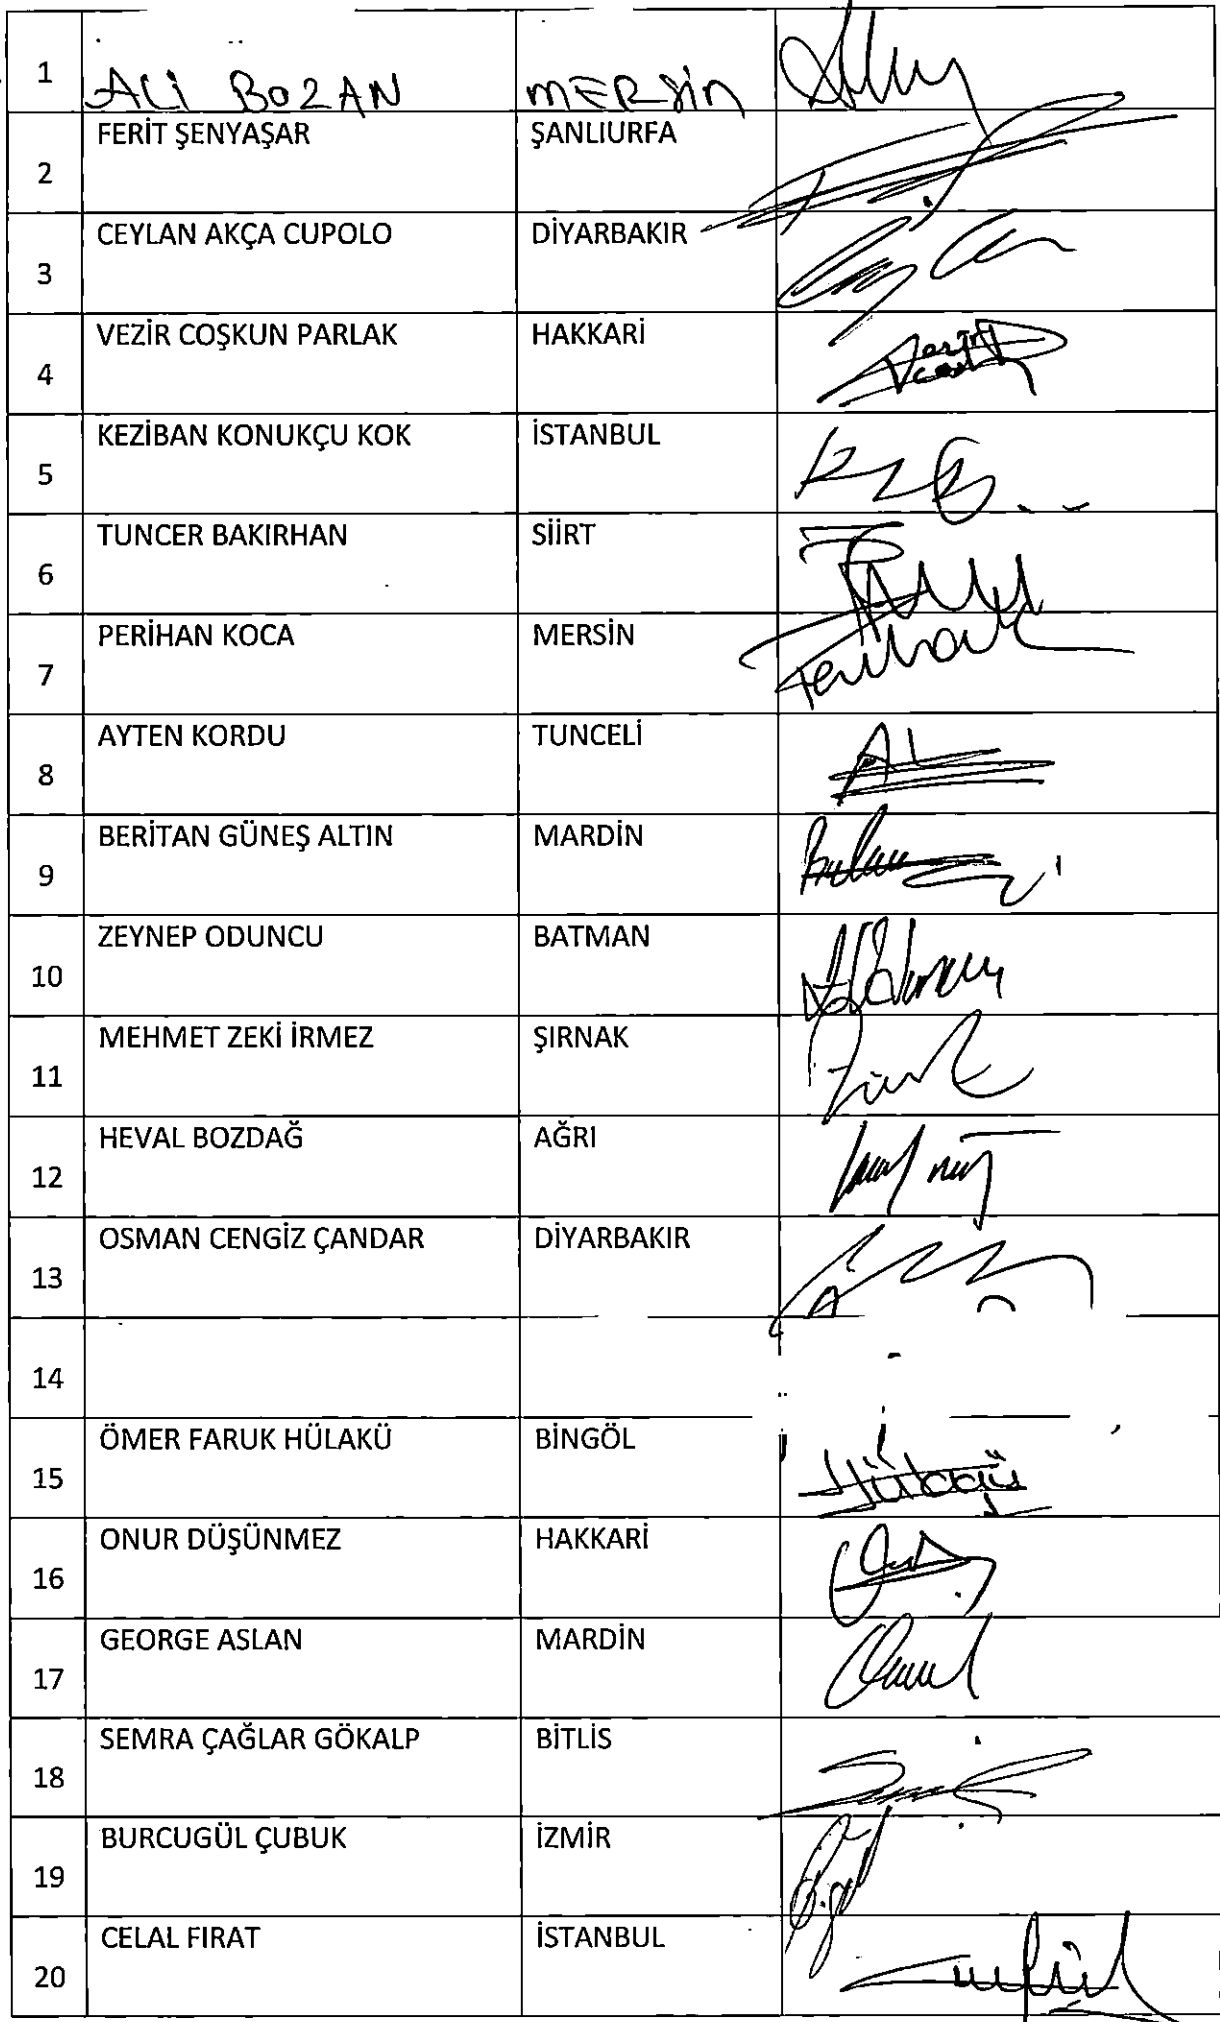 1 ALİ BOZAN MERSİN
2 FERİT ŞENYAŞAR ŞANLIURFA
3 CEYLAN AKÇA CUPOLO DİYARBAKIR
4 VEZİR COŞKUN PARLAK HAKKARİ
5 KEZİBAN KONUKÇU KOK İSTANBUL
6 TUNCER BAKIRHAN SİİRT
7 PERİHAN KOCA MERSİN
8 AYTEN KORDU TUNCELİ
9 BERİTAN GÜNEŞ ALTIN MARDİN
10 ZEYNEP ODUNCU BATMAN
11 MEHMET ZEKİ İRMEZ ŞIRNAK
12 HEVAL BOZDAĞ AĞRI
13 OSMAN CENGİZ ÇANDAR DİYARBAKIR
14
15 ÖMER FARUK HÜLAKÜ BİNGÖL
16 ONUR DÜŞÜNMEZ HAKKARİ
17 GEORGE ASLAN MARDİN
18 SEMRA ÇAĞLAR GÖKALP BİTLİS
19 BURCUGÜL ÇUBUK İZMİR
20 CELAL FIRAT İSTANBUL